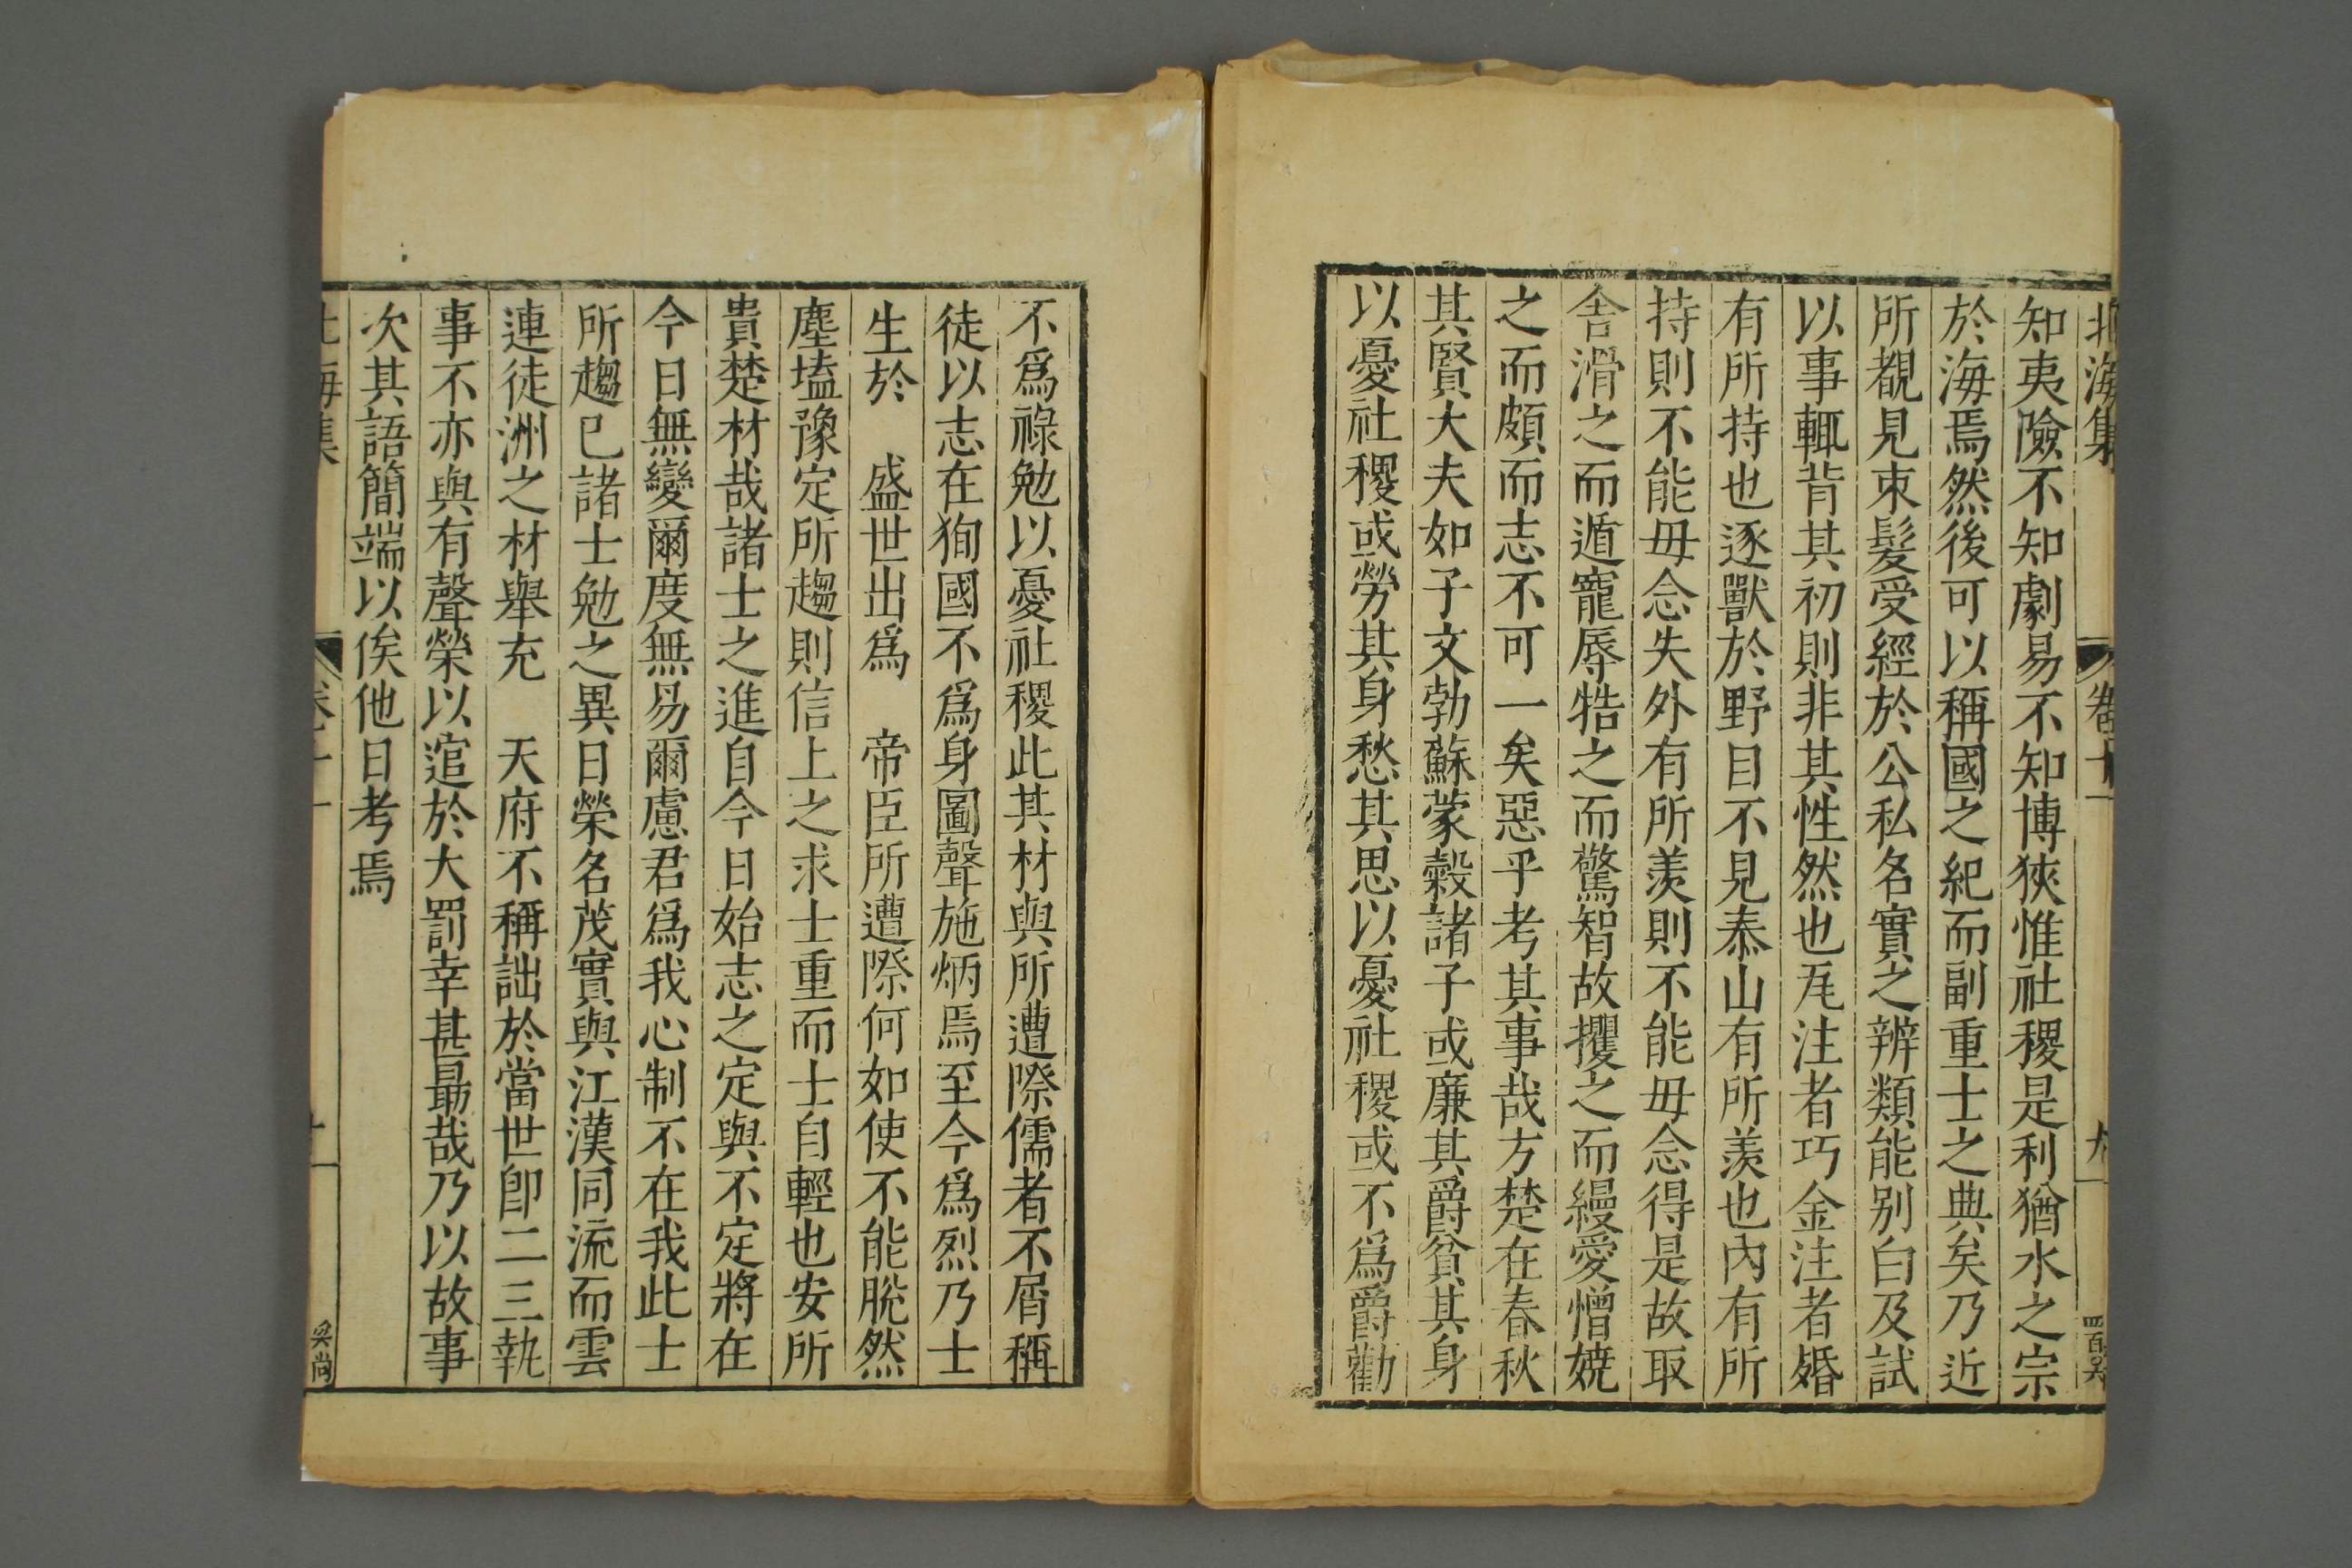 北海集 卷十一 九
知夷險不知劇易不知博狹惟社稷是利猶水之宗
於海焉然後可以稱國之紀而副重士之典矣乃近
所覩見束髮受經於公私名實之辨類能别白及試
以事輒背其初則非其性然也瓦注者巧金注者婚
有所持也逐獸於野目不見泰山有所羨也內有所
持則不能毋念失外有所羨則不能毋念得是故取
舍滑之而遁寵辱牿之而驚智故攖之而縵愛憎嬈
之而頗而志不可一矣惡乎考其事哉方楚在春秋
其賢大夫如子文勃蘇蒙榖諸子或廉其爵貧其身
以憂社稷或勞其身愁其思以憂社稷或不爲爵勸
不爲祿勉以憂社稷此其材與所遭際儒者不屑稱
徒以志在狥國不爲身圖聲施炳焉至今爲烈乃士
生於 盛世出爲 帝臣所遭際何如使不能脫然
塵壒豫定所趨則信上之求士重而士自輕也安所
貴楚材哉諸士之進自今日始志之定與不定將在
今日無變爾度無易爾慮君爲我心制不在我此士
所趨已諸士勉之異日榮名茂實與江漢同流而雲
連徒洲之材舉充 天府不稱詘於當世卽二三執
事不亦與有聲榮以逭於大罰幸甚最哉乃以故事
次其語簡端以俟他日考焉
北海集 卷十一
吳尚